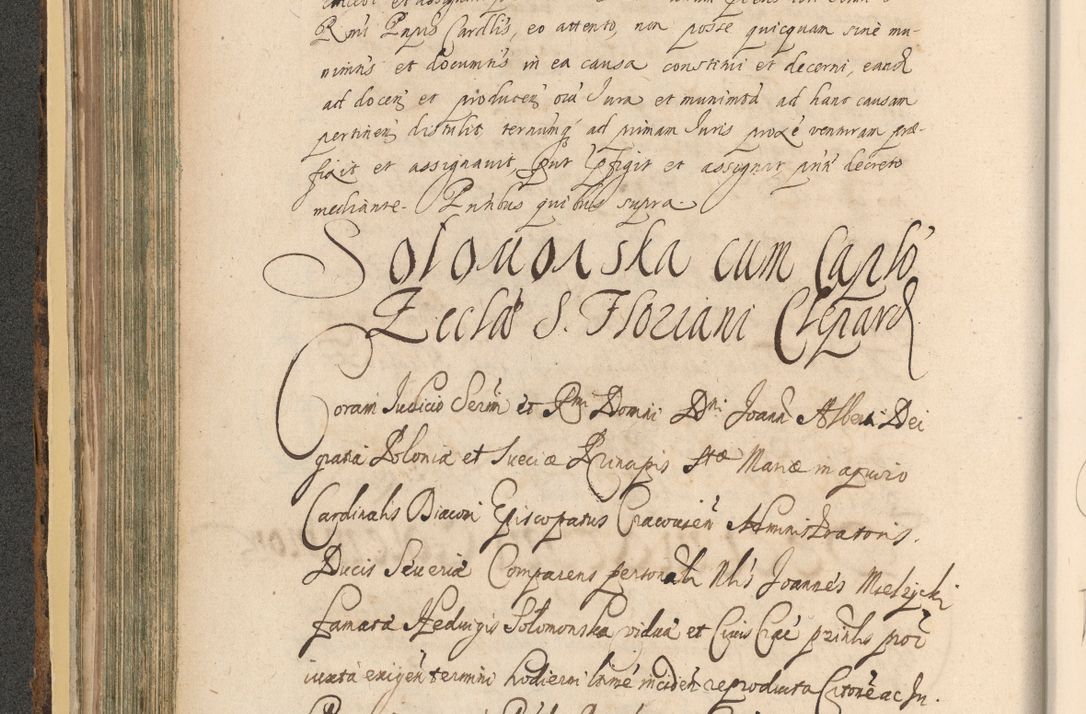 Rmi Pnpis Cardlis, eo attento, non posse quicquam sine mu-
nimtis et documtis in ea causa constitui et decerni, eand
ad docen et producen oia Jura et munimta ad hanc causam
pertinen distulit terminumq ad primam Juris proxe venturam præ-
fixit et assignavit, put Pfigit et assignat pnti decreto
mediante. Pntibus quibus supra.
Solomonska cum Caplo
Eccla S. Floriani Clepard
Coram Judicio Sermi et Rmi Domni Dni Joann Alberti Dei
gratia Polonia et Sueciæ Principis Stæ Mariæ in aquiro
Cardinalis Diaconi Episcopatus Cracovien Administratoris.
Ducis Severiæ Comparens personalr Nlis Joannes Mielzycki
famata Hedvigis Solomonska vidua et Civis Crac principlis pror
iuxta exigen termini hodierni
reproducta Citone ac In.